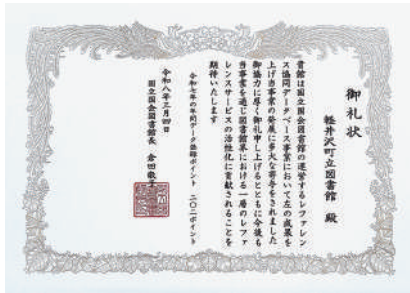 御礼状
軽井沢町立図書館 殿
貴館は国立国会図書館の運営するレファレン
ス協同データベース事業において左の成果を
上げ当事業の発展に多大な寄与をされました
御協力に厚く御礼申し上げるとともに今後も
当事業を通じ図書館界における一層のレファ
レンスサービスの活性化に貢献されることを
期待いたします
令和七年の年間データ登録ポイント 二〇二ポイント
令和八年三月四日
国立国会図書館長 倉田敬子